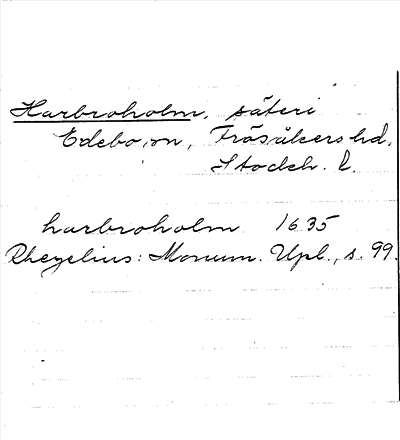 Harbroholm, säteri
Edebo, sn, Frösåkers hd.
Stockh. l.
harbroholm 1635
Rhezelius: Monum. Upl., s. 99.